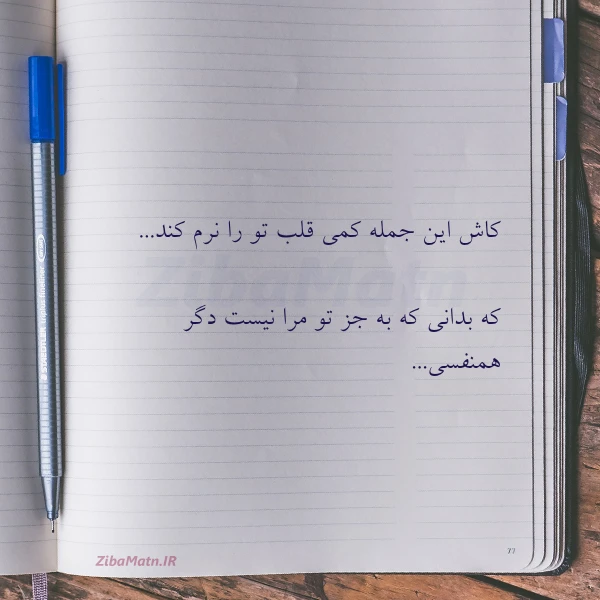 کاش این جمله کمی قلب تو را نرم کند...
ZibaMatn
که بدانی که به جز تو مرا نیست دگر
همنفسی...
77
ZibaMatn.IR